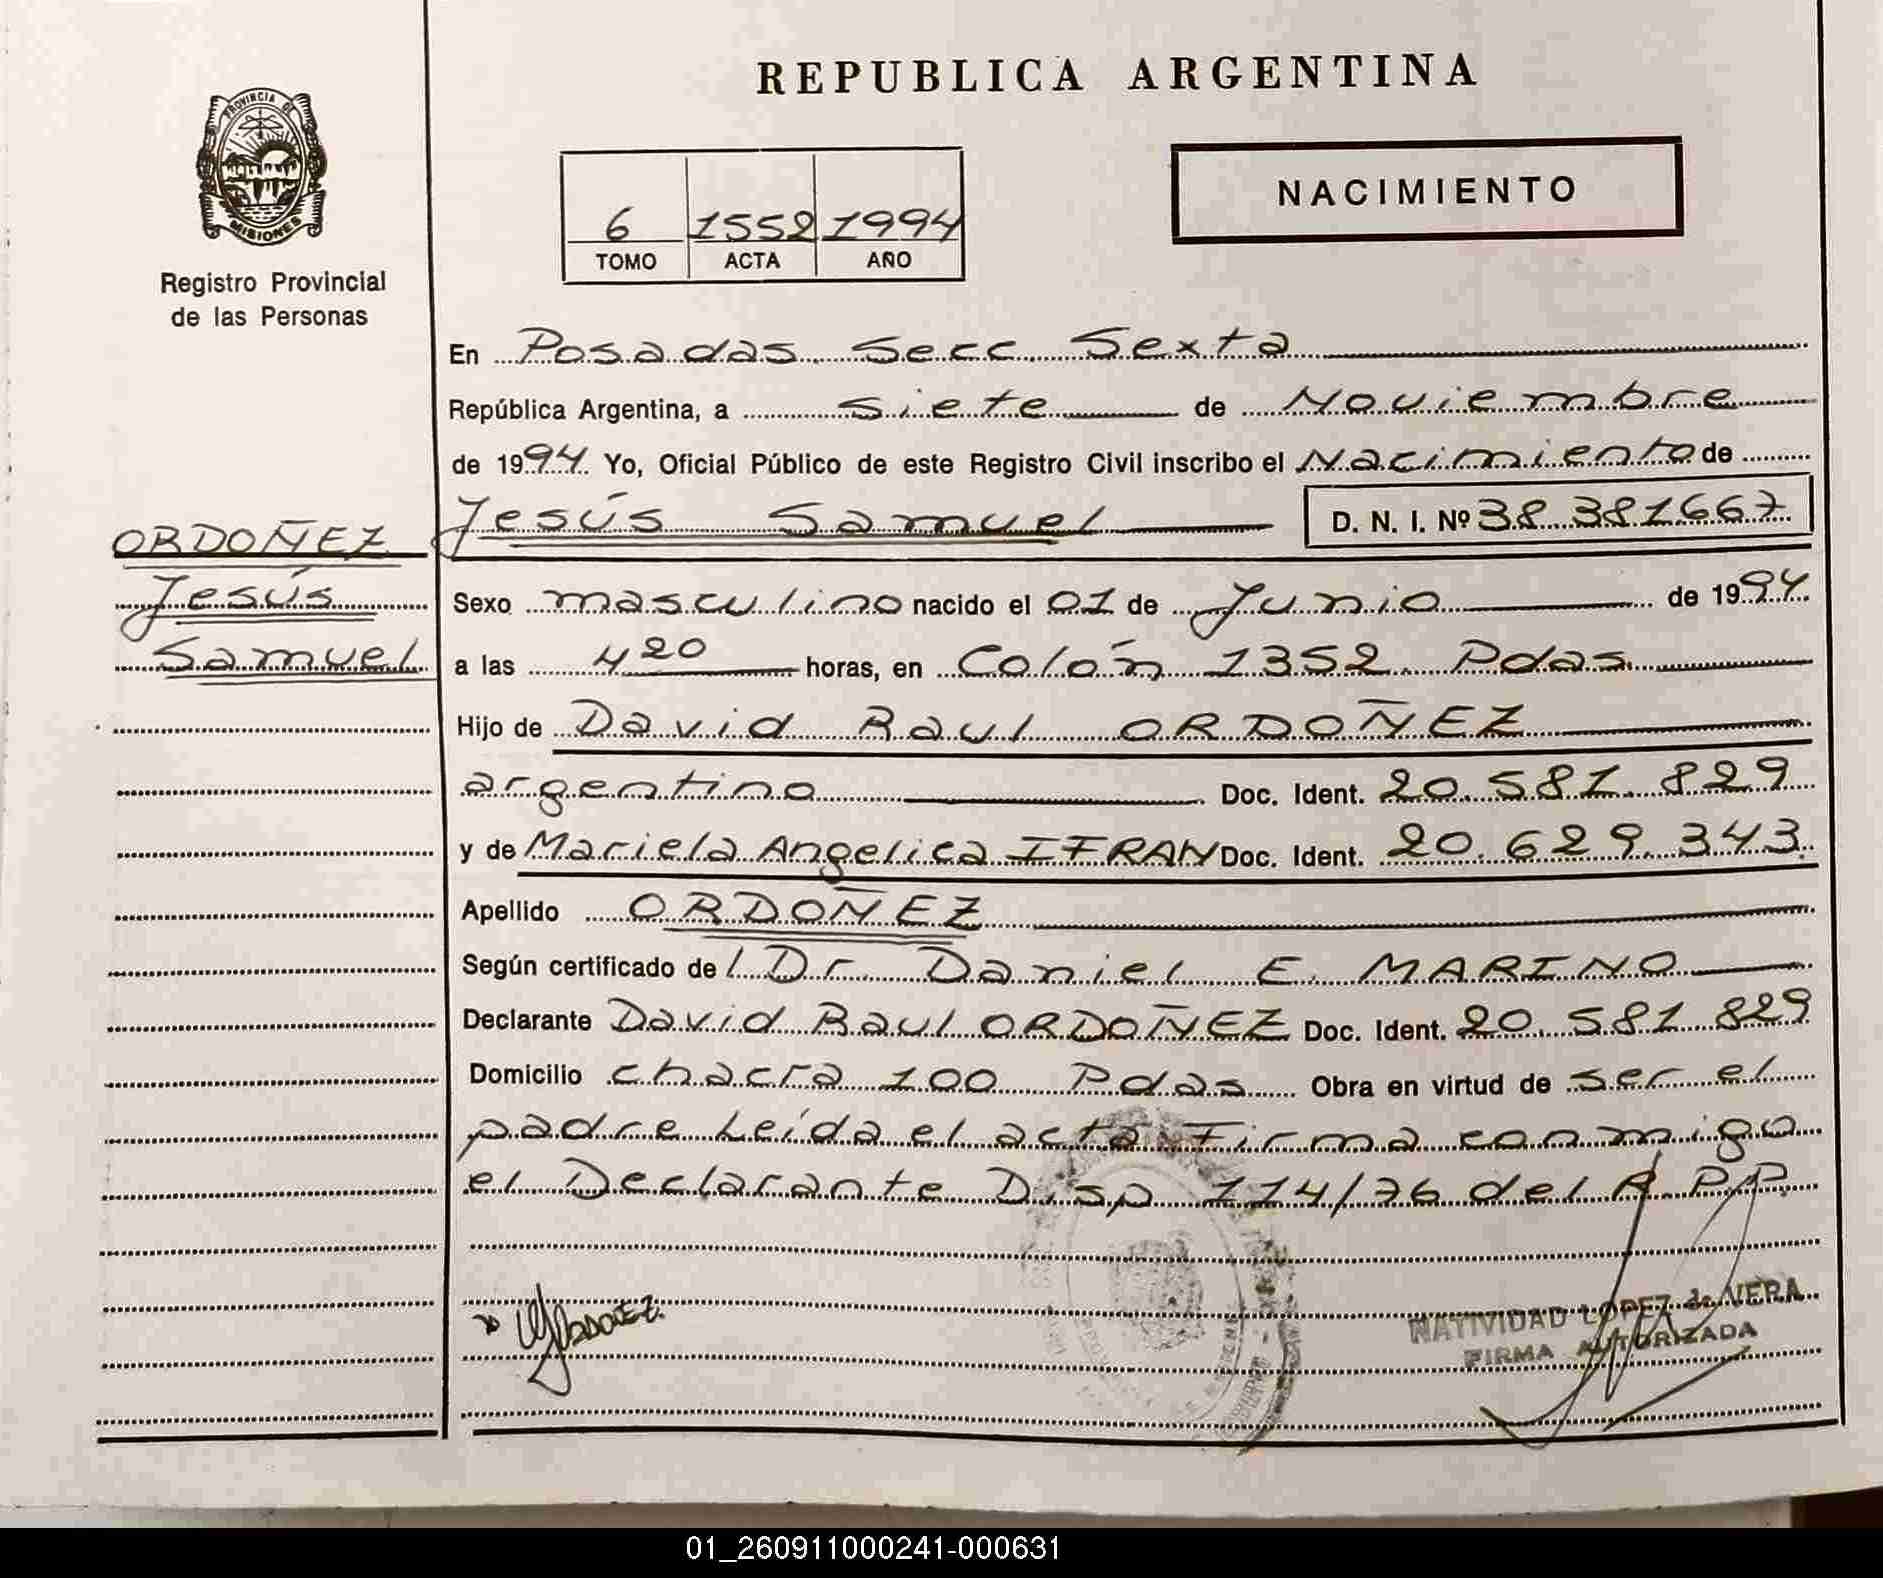 REPUBLICA ARGENTINA
PROVINCIA DE
MISIONES
Registro Provincial
de las Personas
6 1552 1994
TOMO ACTA AÑO
NACIMIENTO
En Posadas. Secc. Sexta
República Argentina, a siete de Noviembre
de 1994. Yo, Oficial Público de este Registro Civil inscribo el Nacimiento de
Jesús Samuel D. N. I. Nº 38.381667
ORDOÑEZ
Jesús
Samuel
Sexo masculino nacido el 01 de Junio de 1994.
a las 4 20 horas, en Colón 1352. Pdas.
Hijo de David Raul ORDOÑEZ
argentino Doc. Ident. 20.581.829
y de Mariela Angelica IFRAN Doc. Ident. 20.629.343.
Apellido ORDOÑEZ
Según certificado de l Dr. Daniel E. MARINO
Declarante David Raul ORDOÑEZ Doc. Ident. 20.581.829
Domicilio chacra 100 Pdas. Obra en virtud de ser el
padre Leída el acta Firma conmigo
el Declarante Disp 114/76 del R.P.P.
NATIVIDAD LOPEZ de VERA
FIRMA AUTORIZADA
01_260911000241-000631